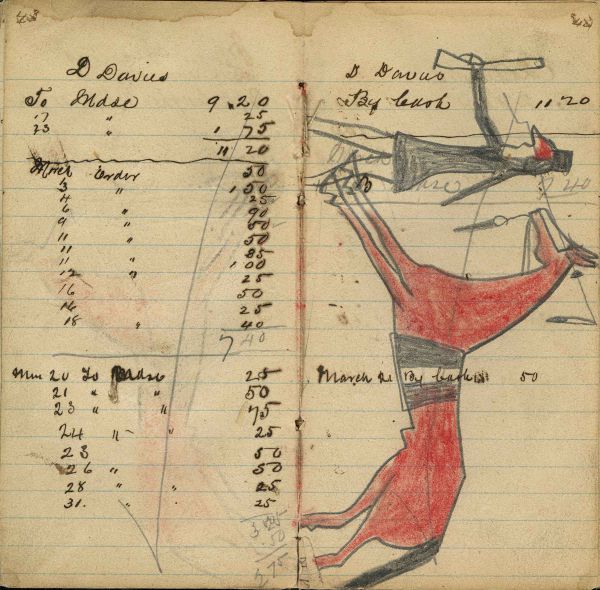 D Davies
To Mdse 9 20
17 " 25
23 " 1 75
11 20
March Order 50
3 " 1 50
4 25
6 " 90
9 " 50
11 " 50
11 85
11 " 1 00
12 " 25
16 50
16 25
18 " 40
7 40
Mar 20 To Mdse 25
21 " " 50
23 " " 75
24 " " 25
23 50
26 " 50
28 " " 25
31 " 25
50
2 75
D Davies
By Cash 11 20
March
7 40
March 21 By Cash 50